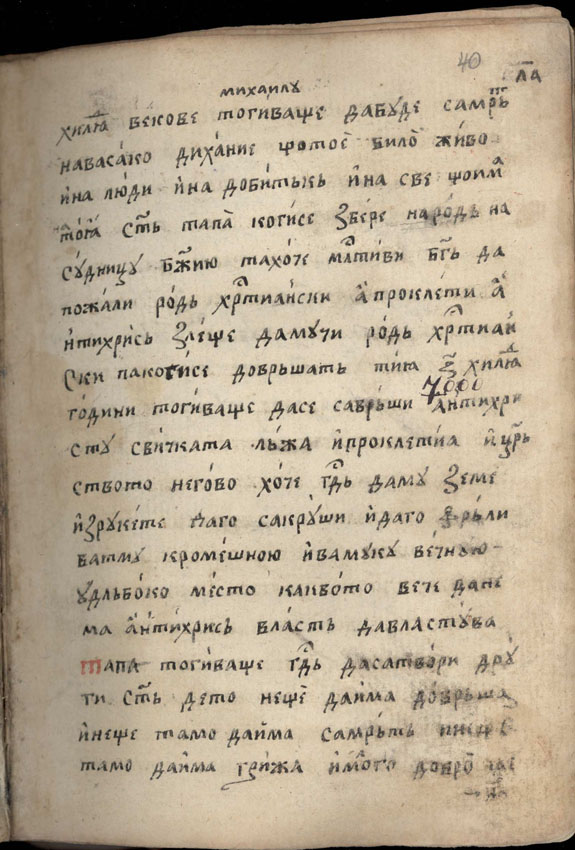 40
л҃а
михаилу
хилѧ҃ векове тогиваще дабуде самрⷮь
навасако дихание щотоѐ било̀ живо
ѝна люди ѝна доби́тькь ѝна све щоимⷶ
тоѝа сть҃ тапа̀ когисе збере наро́дь на
су́дницу бж҃ию тахоче млⷭтиви бг҃ь да
пожали родь хрⷭтиански а̀проклети а̀
нтихрись зле́ще дамучи родь хрⷭтиан
ски пакогисе доврьшать тиѝа з҃ хилѧ҃
7000
години тогиваще дасе саврьши а̀нтихри
сту свичката льжа ѝпроклетиа ѝцрⷭь
ството него́во хо́че гд҃ь даму земе
ѝзрукете даго сакру́ши ѝдаго фрь́ли
ватму кроме́шною ѝвамуку ве́чную
удльбо́ко ме́сто какво́то вече дане
ма а̀нтихрись власть давласту́ва
тапа тогиваще гд҃ь дасатвори дру́
ти сть҃ дето неще даѝма довръша
ѝнеще тамо даѝма самрьть нище
тамо даѝма грижа ѝмно́го добро̀